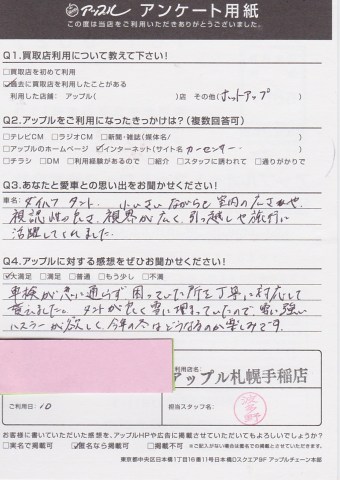 アップル アンケート用紙
この度は当店をご利用いただきありがとうございました。
Q1.買取店利用について教えて下さい!
□買取店を初めて利用
☑過去に買取店を利用したことがある
利用した店舗: アップル( )店 その他(ホットアップ)
Q2.アップルをご利用になったきっかけは?(複数回答可)
□テレビCM □ラジオCM □新聞・雑誌(媒体名/ )
□アップルのホームページ ☑インターネット(サイト名 カーセンサー )
□チラシ □DM □利用経験があるので □紹介 □スタッフに誘われて □通りがかりで
Q3.あなたと愛車との思い出をお聞かせください!
車名: ダイハツ タント. 小さいながらも室内の広さや、
視認性の良さ、視界が広く、引っ越しや旅行に
活躍してくれました。
Q4.アップルに対する感想をぜひお聞かせください!
☑大満足 □満足 □普通 □もう少し □不満
車検が急に通らず困っていた所を丁寧に対応して
貰えました。タントが良く雪に埋まっていたので、雪に強い
ハスラーが欲しく今年の冬はどうなるのか楽しみです。
ご利用店名:
アップル札幌手稲店
ご利用日: 10
担当スタッフ名:
波多野
お客様に書いていただいた感想を、アップルHPや広告に掲載させていただいてもよろしいでしょうか?
□実名で掲載可 ☑匿名なら掲載可 □掲載不可 ※ご記入がない場合は匿名での掲載とさせていただきます。
東京都中央区日本橋1丁目16番11号日本橋Dスクエア9F アップルチェーン本部